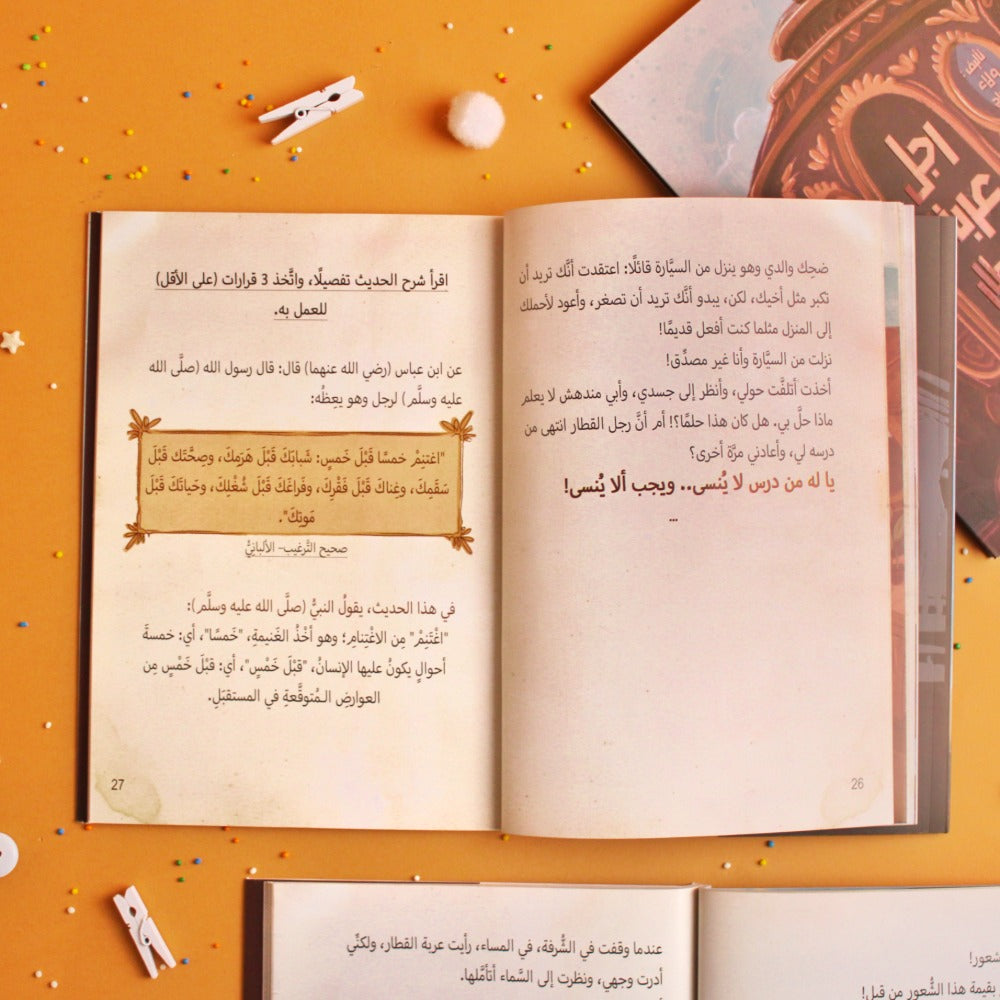 ضحِك والدي وهو ينزل من السيَّارة قائلًا: اعتقدت أنَّك تريد أن
تكبر مثل أخيك، لكن، يبدو أنَّك تريد أن تصغر، وأعود لأحملك
إلى المنزل مثلما كنت أفعل قديمًا!
نزلت من السيَّارة وأنا غير مصدِّق!
أخذت أتلفَّت حولي، وأنظر إلى جسدي، وأبي مندهش لا يعلم
ماذا حلَّ بي. هل كان هذا حلمًا؟! أم أنَّ رجل القطار انتهى من
درسه لي، وأعادني مرَّة أخرى؟
يا له من درس لا يُنسى.. ويجب ألا يُنسى!
...
26
اقرأ شرح الحديث تفصيلًا، واتَّخذ 3 قرارات (على الأقل)
للعمل به.
عن ابن عباس (رضي الله عنهما) قال: قال رسول الله (صلَّى الله
عليه وسلَّم) لرجل وهو يعِظُه:
"اغتنِمْ خمسًا قَبْلَ خَمسٍ: شَبابَكَ قَبْلَ هَرَمِكَ، وصِحَّتَك قَبْلَ
سَقَمِكَ، وغِناكَ قَبْلَ فَقْرِكَ، وفَراغَكَ قَبْلَ شُغْلِكَ، وحَياتَكَ قَبْلَ
مَوتِكَ".
صحيح التَّرغيب- الألبانِيُّ
في هذا الحديث، يقولُ النبيُّ (صلَّى الله عليه وسلَّم):
"اغْتَنِمْ" مِن الاغْتِنامِ؛ وهو أخْذُ الغَنيمةِ، "خَمسًا"، أي: خمسةَ
أحوالٍ يكونُ عليها الإنسانُ، "قبْلَ خَمْسٍ"، أي: قبْلَ خَمْسٍ مِن
العوارضِ المُتوقَّعةِ في المستقبَلِ.
27
تأليف:
ولاء
رجل
عربة
شعور!
بقيمة هذا الشُّعور من قبل!
عندما وقفت في الشُّرفة، في المساء، رأيت عربة القطار، ولكنِّي
أدرت وجهي، ونظرت إلى السَّماء أتأمَّلها.